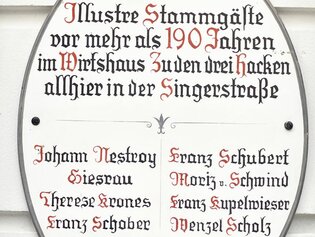 Illustre Stammgäste
vor mehr als 190 Jahren
im Wirtshaus Zu den drei Hacken
allhier in der Singerstraße
Johann Nestroy
Giesrau
Therese Krones
Franz Schober
Franz Schubert
Moriz v. Schwind
Franz Kupelwieser
Wenzel Scholz